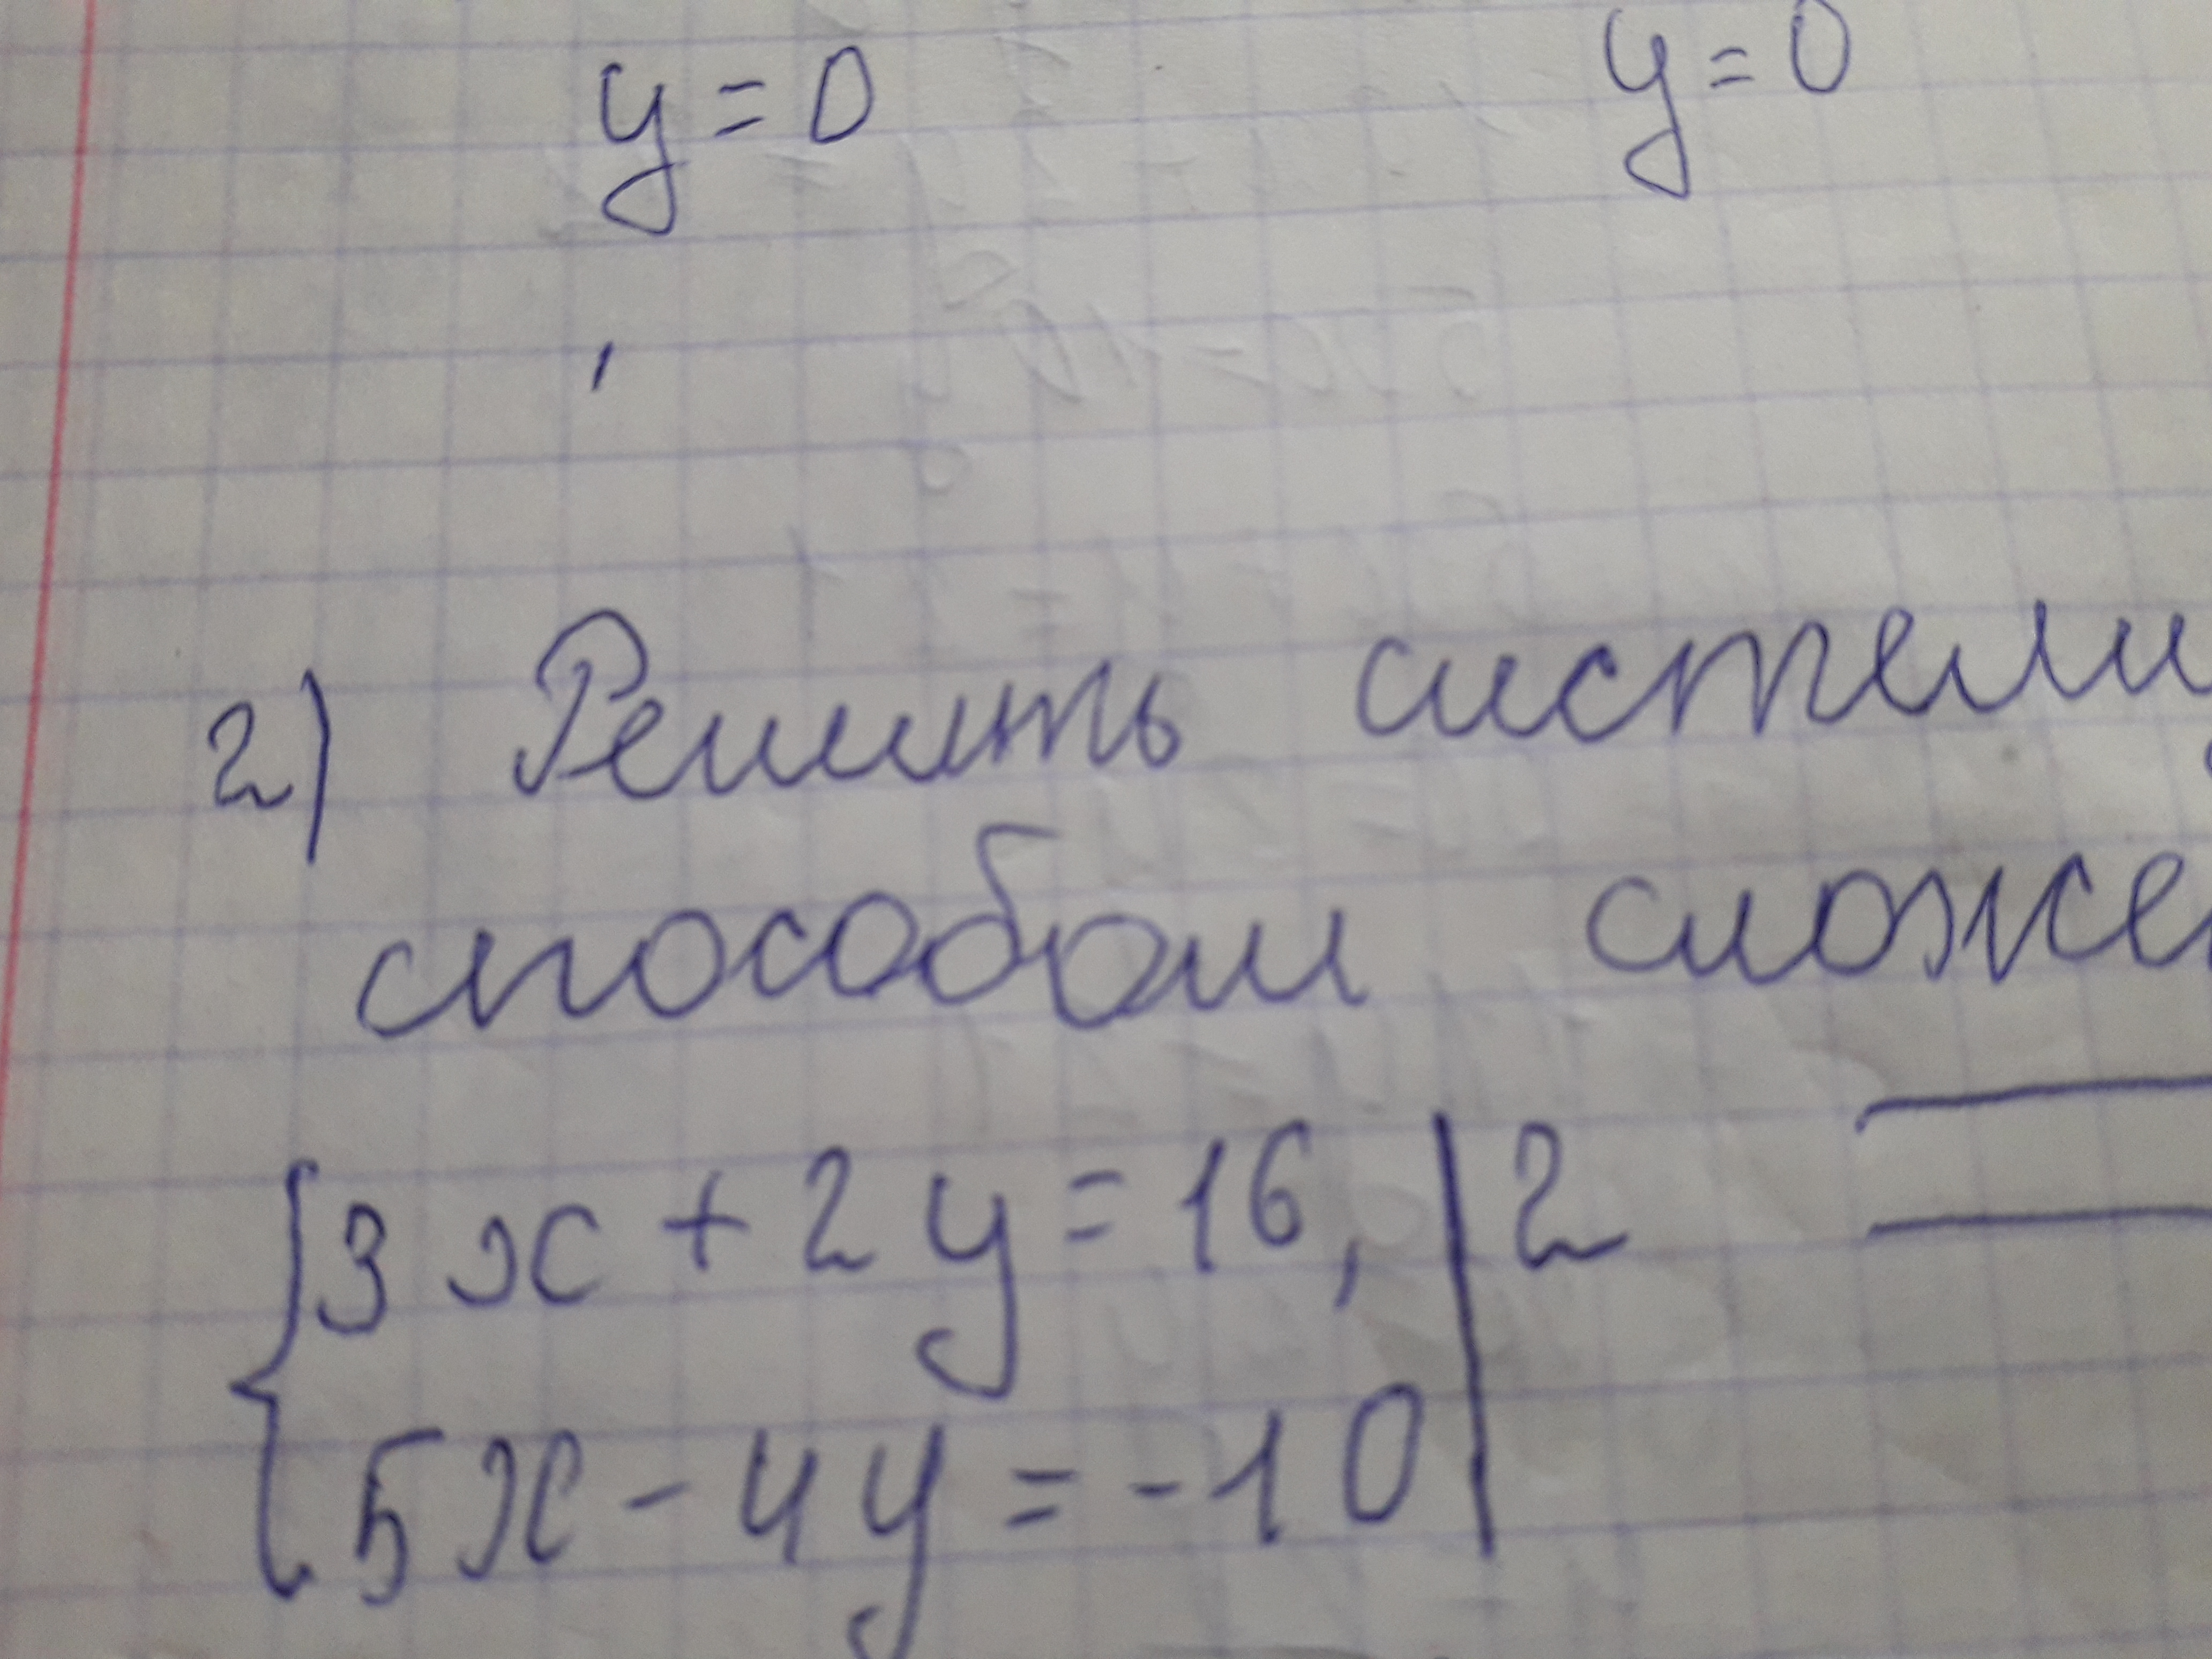 y = 0 y = 0
2) Решить систему
способом сложе
3x + 2y = 16, | 2
5x - 4y = -10